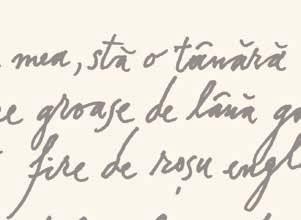 mea, stă o tânără
groase de lână
fire de roșu engl